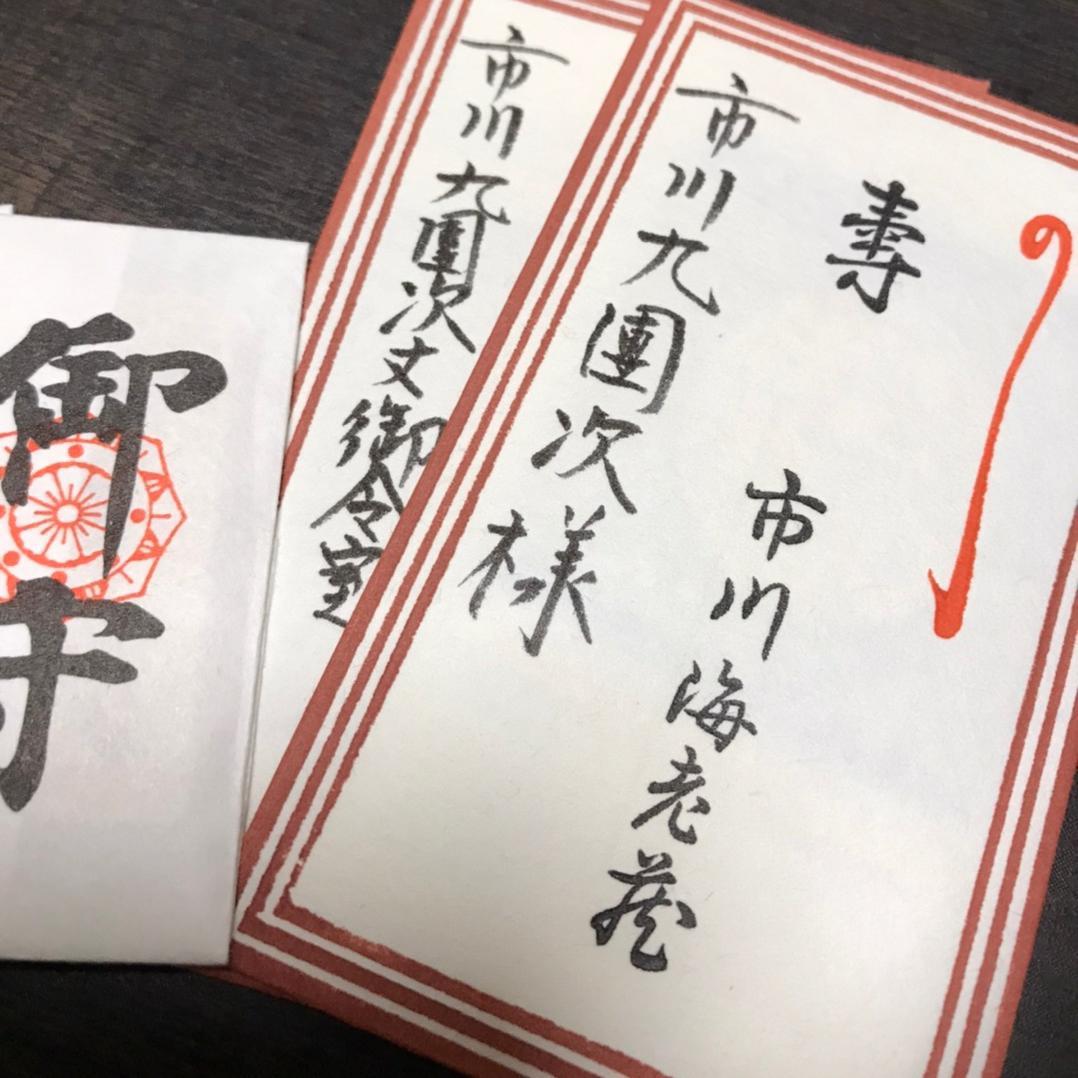 壽
市川海老蔵
市川九團次様
市川九團次丈御令室
御守